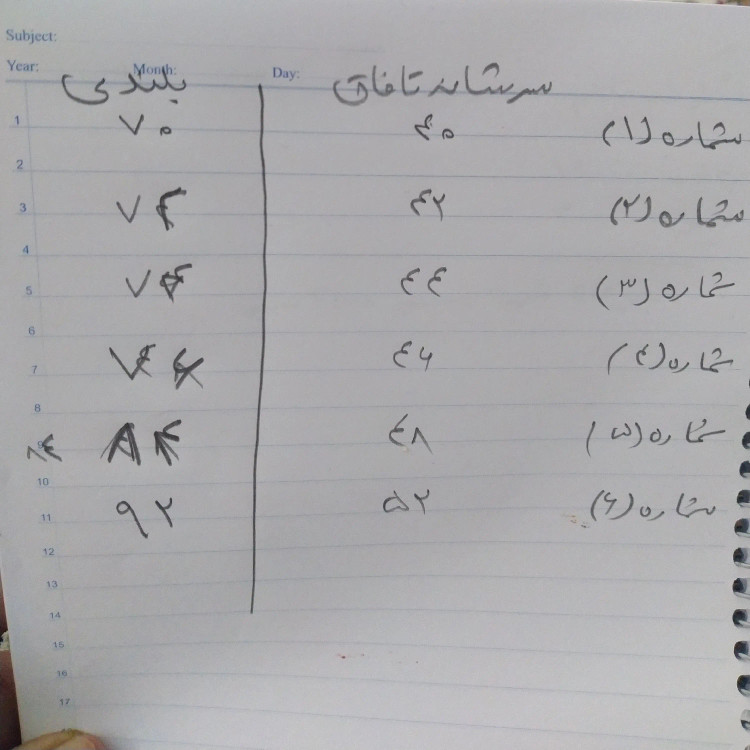 Subject:
Year: Month: Day:
سرشانه تا فاق بلندی
1 شماره (۱) ۴۰ ۷۰
2
3 شماره (۲) ۴۲ ۷۴
4
5 شماره (۳) ۴۴
6
7 شماره (۴) ۴۶
8
9 شماره (۵) ۴۸ ۸۴
10
11 شماره (۶) ۵۲ ۹۲
12
13
14
15
16
17